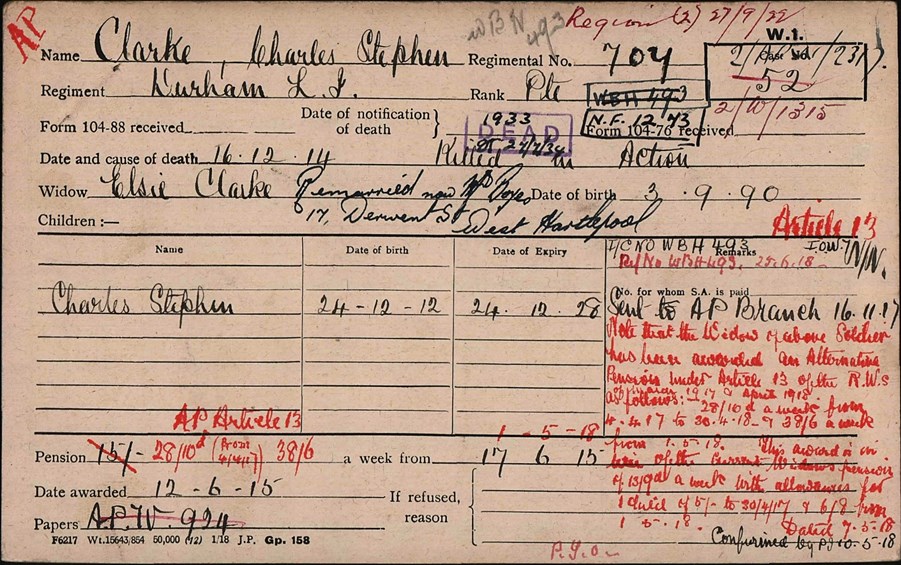 AP
WBN 493
Region (2) 27/9/22
W.1.
Name Clarke, Charles Stephen Regimental No. 704
Case No.
52
Regiment Durham L.I. Rank Pte
WBH 493
2/W/1315
Form 104-88 received Date of notification of death 1933
N.F. 12 73
DEAD
Form 104-76 received
Date and cause of death 16.12.14 Killed in Action
Widow Elsie Clarke Remarried now Mrs Boyes Date of birth 3.9.90
17, Derwent St West Hartlepool
Children :—
Article 13
Name Date of birth Date of Expiry
I/C NO WBH 493 Remarks
Ref No WBH 493. 25.6.18
N/N.
No. for whom S.A. is paid
Charles Stephen 24-12-12 24.12.28
Sent to AP Branch 16.11.17
Note that the Widow of above Soldier
has been awarded an Alternative
Pension under Article 13 of the R.W.s
1917 & April 1918
as follows:- 28/10d a week from
4.4.17 to 30.4.18 & 38/6 a week
from 1.5.18. This award is in
lieu of the current Widows pension
of 13/9d a week with allowances for
1 child of 5/- to 30/4/17 & 6/8 from
1.5.18. Dated 7.5.18
Confirmed by 10.5.18
AP Article 13
1-5-18
Pension 15/- 28/10d (from 4/4/17) 38/6 a week from 17 6 15
Date awarded 12-6-15
If refused, reason
Papers A.P.W 924
F6217 Wt.15643/854 50,000 (12) 1/18 J.P. Gp. 158
P.I.O.